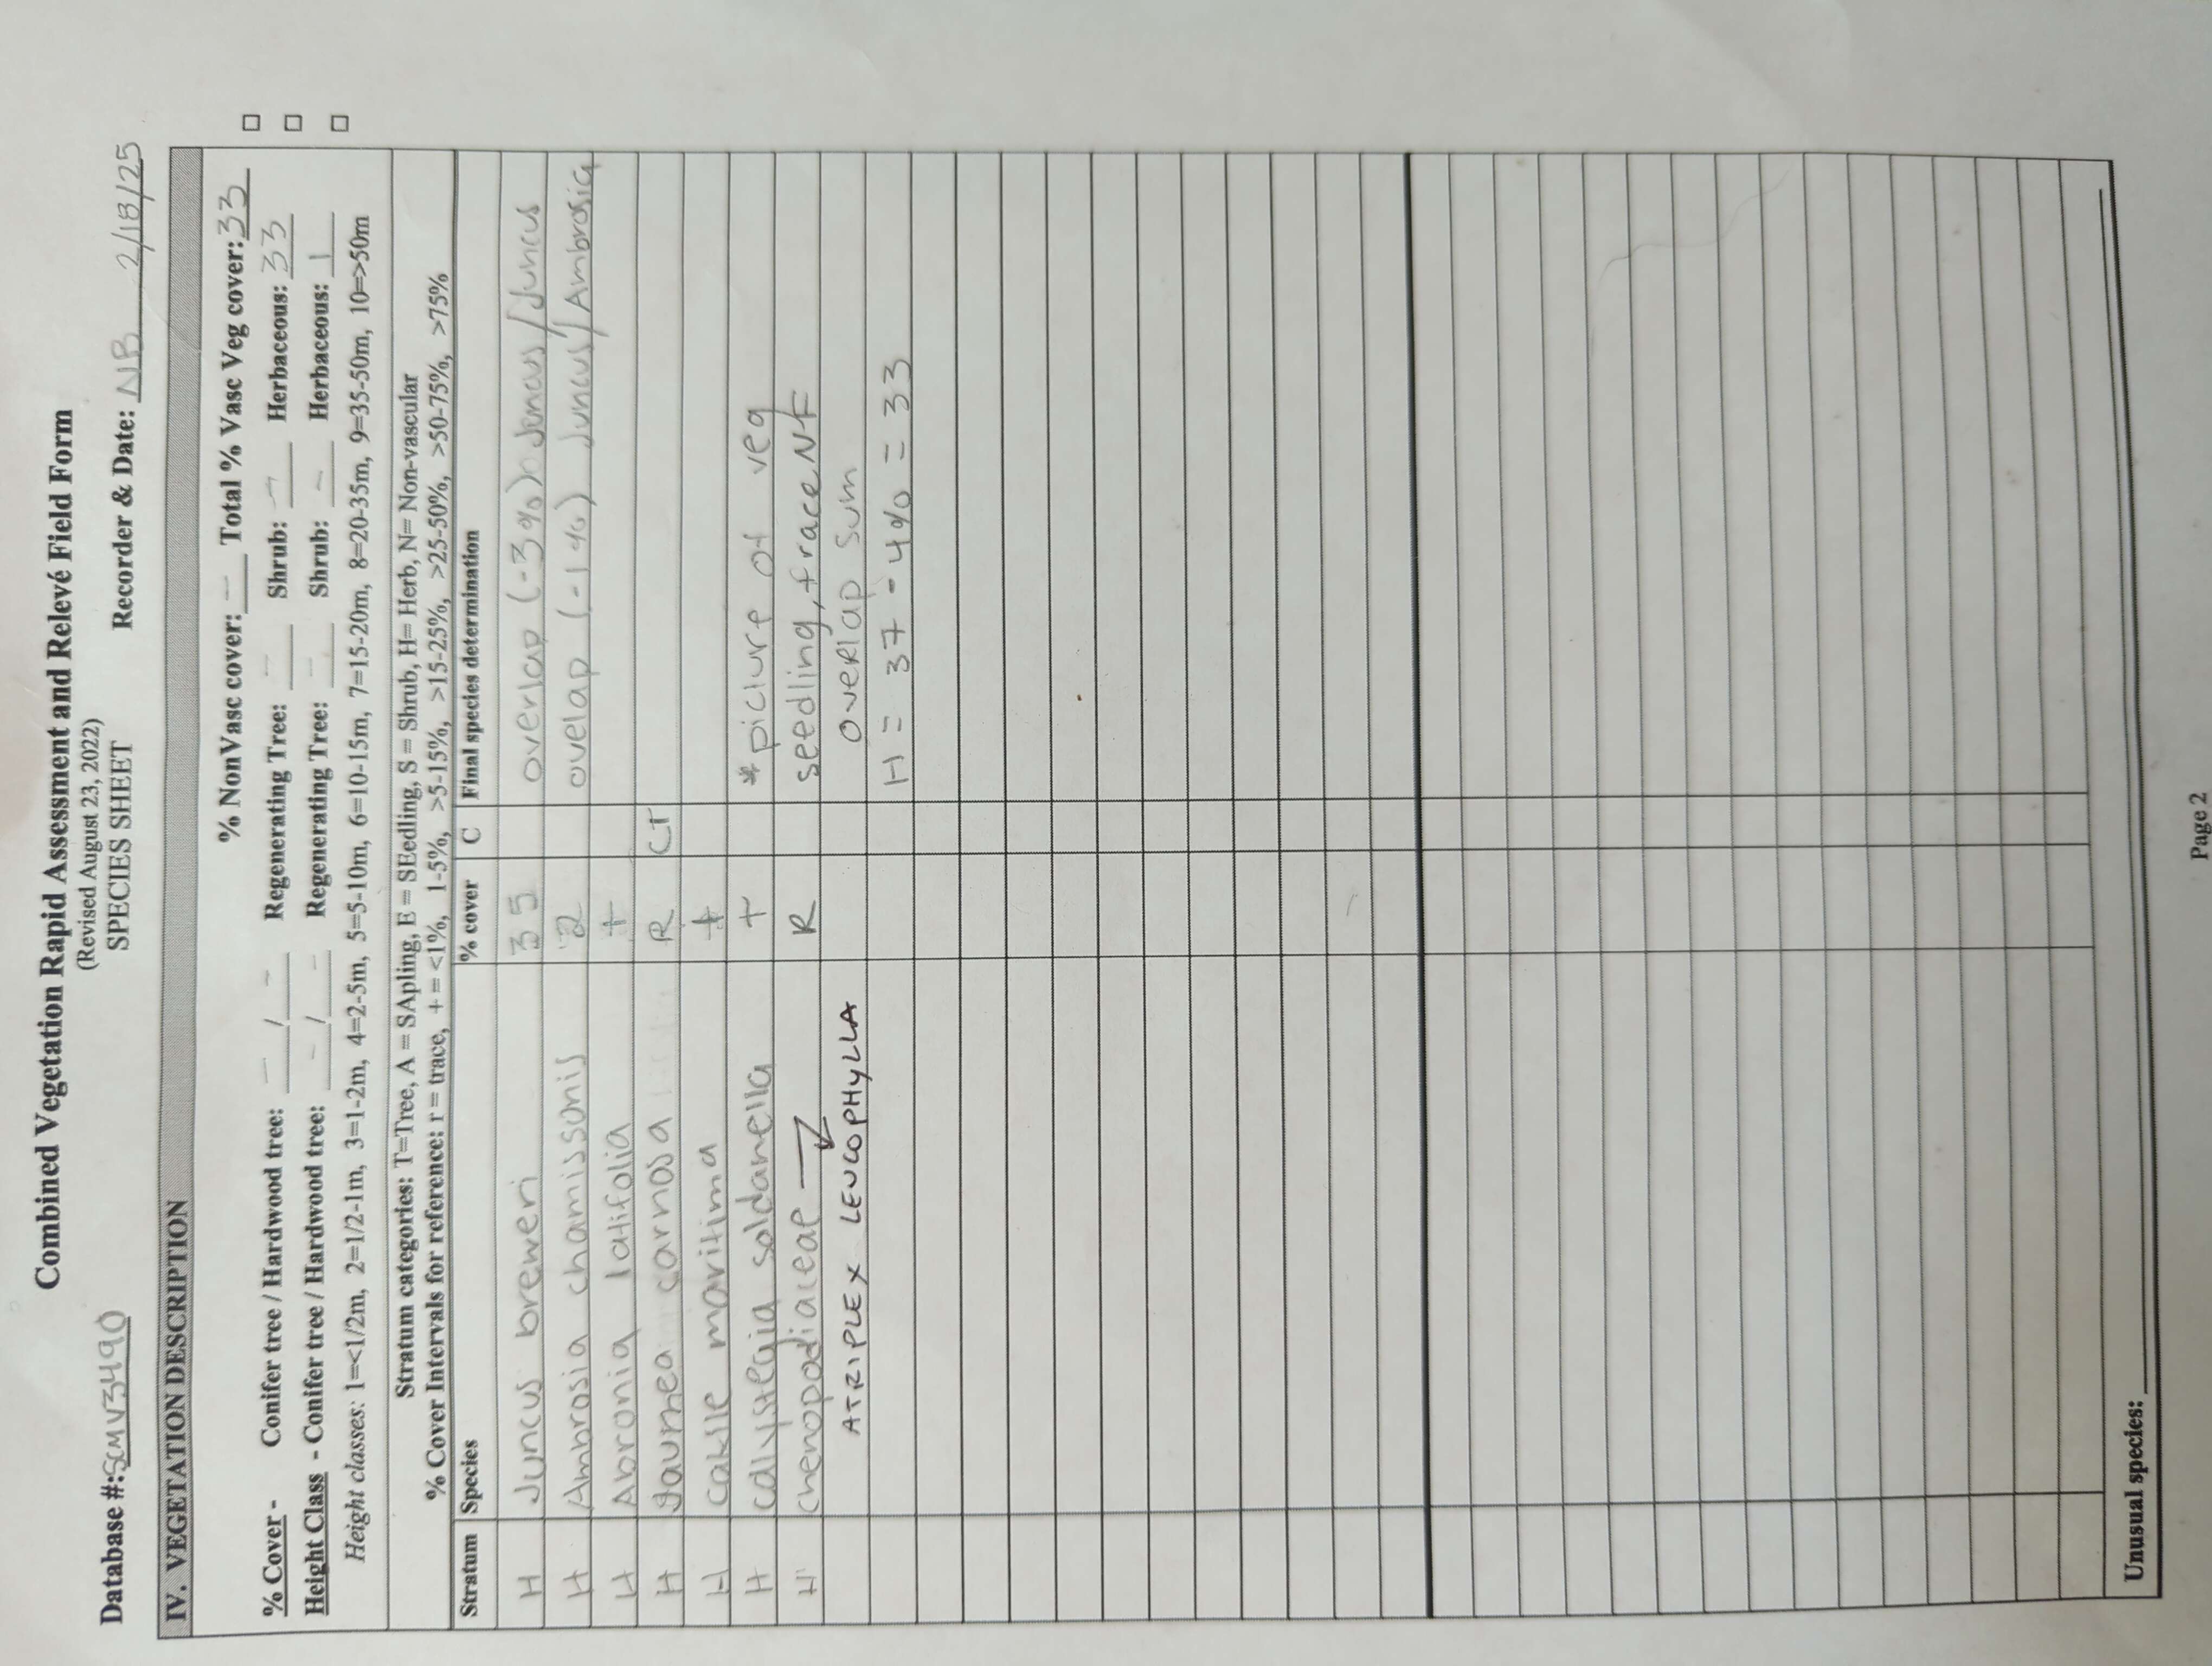 Combined Vegetation Rapid Assessment and Relevé Field Form
(Revised August 23, 2022)
SPECIES SHEET
Database #: SCMV3490 Recorder & Date: NB 2/18/25
IV. VEGETATION DESCRIPTION
% NonVasc cover: - Total % Vasc Veg cover: 33 □
% Cover - Conifer tree / Hardwood tree: - / - Regenerating Tree: - Shrub: - Herbaceous: 33 □
Height Class - Conifer tree / Hardwood tree: - / - Regenerating Tree: - Shrub: - Herbaceous: 1 □
Height classes: 1=<1/2m, 2=1/2-1m, 3=1-2m, 4=2-5m, 5=5-10m, 6=10-15m, 7=15-20m, 8=20-35m, 9=35-50m, 10=>50m
Stratum categories: T=Tree, A = SApling, E = SEedling, S = Shrub, H= Herb, N= Non-vascular
% Cover Intervals for reference: r = trace, + = <1%, 1-5%, >5-15%, >15-25%, >25-50%, >50-75%, >75%
Stratum Species % cover C Final species determination
H Juncus breweri 35 overlap (-3%) Juncus/Juncus
H Ambrosia chamissonis 2 ovelap (-1%) Juncus/Ambrosia
H Abronia latifolia +
H Jaumea carnosa R CT
H cakile maritima +
H calystegia soldanella + *picture of veg
H chenopodiaceae → R seedling, trace NF
ATRIPLEX LEUCOPHYLLA OVERlap Sum
H = 37 - 4% = 33
Unusual species:
Page 2